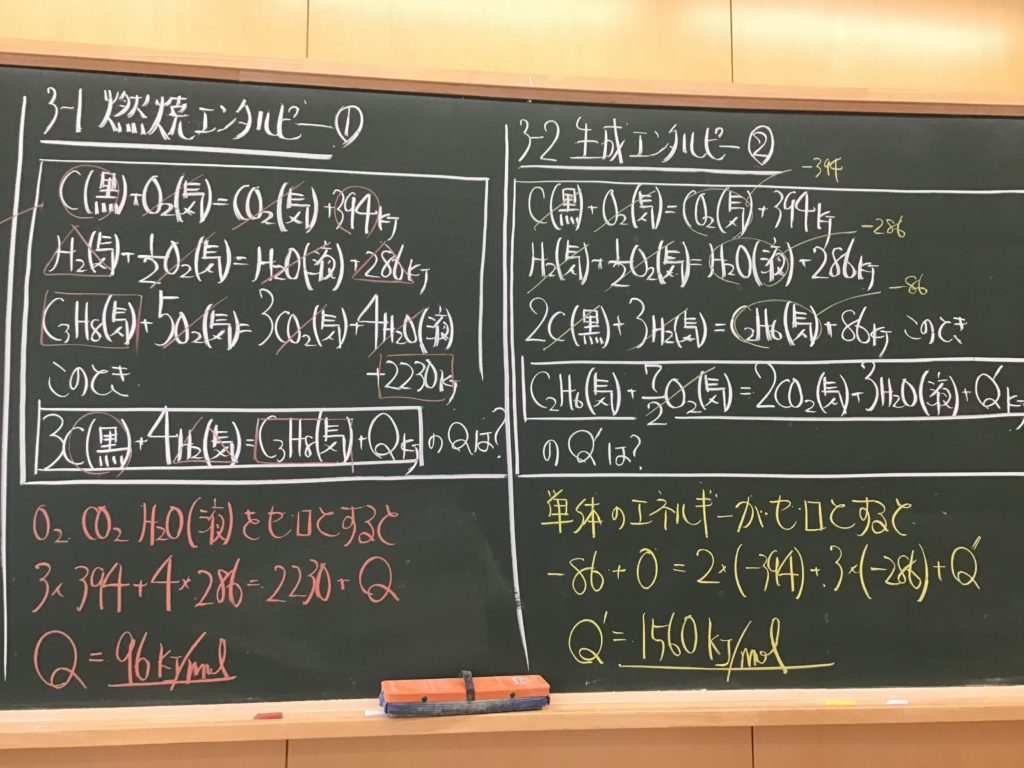 3-1 燃焼エンタルピー①
C(黒)+O₂(気)=CO₂(気)+394kJ
H₂(気)+1/2O₂(気)=H₂O(液)+286kJ
C₃H₈(気)+5O₂(気)=3CO₂(気)+4H₂O(液)
+2230kJ
このとき
3C(黒)+4H₂(気)=C₃H₈(気)+QkJ のQは?
O₂ CO₂ H₂O(液)をゼロとすると
3×394+4×286=2230+Q
Q=96kJ/mol
3-2 生成エンタルピー②
-394
C(黒)+O₂(気)=CO₂(気)+394kJ
-286
H₂(気)+1/2O₂(気)=H₂O(液)+286kJ
-86
2C(黒)+3H₂(気)=C₂H₆(気)+86kJ このとき
C₂H₆(気)+7/2O₂(気)=2CO₂(気)+3H₂O(液)+Q'kJ
のQ'は?
単体のエネルギーがゼロとすると
-86+0=2×(-394)+3×(-286)+Q'
Q'=1560kJ/mol